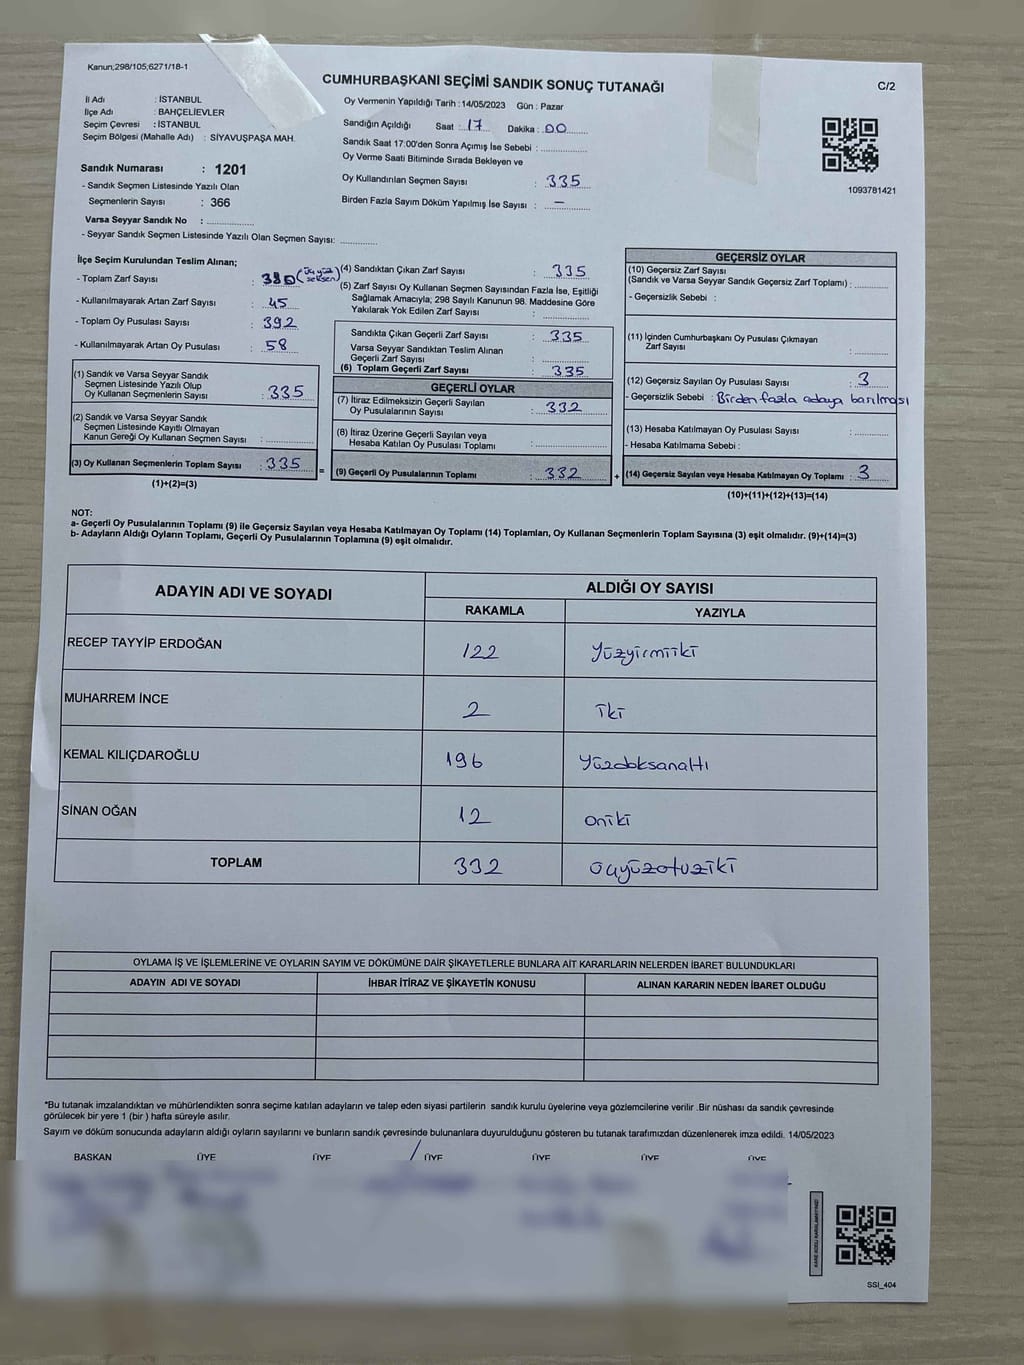 Kanun;298/105,6271/18-1
CUMHURBAŞKANI SEÇİMİ SANDIK SONUÇ TUTANAĞI
C/2
İl Adı : İSTANBUL
İlçe Adı : BAHÇELİEVLER
Seçim Çevresi : İSTANBUL
Seçim Bölgesi (Mahalle Adı) : SİYAVUŞPAŞA MAH.
Sandık Numarası : 1201
- Sandık Seçmen Listesinde Yazılı Olan
Seçmenlerin Sayısı : 366
Varsa Seyyar Sandık No :
- Seyyar Sandık Seçmen Listesinde Yazılı Olan Seçmen Sayısı:
Oy Vermenin Yapıldığı Tarih : 14/05/2023 Gün : Pazar
Sandığın Açıldığı Saat : 17 Dakika : 00
Sandık Saat 17:00'den Sonra Açımış İse Sebebi :
Oy Verme Saati Bitiminde Sırada Bekleyen ve
Oy Kullandırılan Seçmen Sayısı : 335
Birden Fazla Sayım Döküm Yapılmış İse Sayısı : —
1093781421
İlçe Seçim Kurulundan Teslim Alınan;
- Toplam Zarf Sayısı : 380 (üçyüz seksen)
- Kullanılmayarak Artan Zarf Sayısı : 45
- Toplam Oy Pusulası Sayısı : 392
- Kullanılmayarak Artan Oy Pusulası : 58
(1) Sandık ve Varsa Seyyar Sandık
Seçmen Listesinde Yazılı Olup
Oy Kullanan Seçmenlerin Sayısı : 335
(2) Sandık ve Varsa Seyyar Sandık
Seçmen Listesinde Kayıtlı Olmayan
Kanun Gereği Oy Kullanan Seçmen Sayısı :
(3) Oy Kullanan Seçmenlerin Toplam Sayısı : 335
(1)+(2)=(3)
=
(4) Sandıktan Çıkan Zarf Sayısı : 335
(5) Zarf Sayısı Oy Kullanan Seçmen Sayısından Fazla İse, Eşitliği
Sağlamak Amacıyla; 298 Sayılı Kanunun 98. Maddesine Göre
Yakılarak Yok Edilen Zarf Sayısı :
Sandıkta Çıkan Geçerli Zarf Sayısı : 335
Varsa Seyyar Sandıktan Teslim Alınan
Geçerli Zarf Sayısı :
(6) Toplam Geçerli Zarf Sayısı : 335
GEÇERLİ OYLAR
(7) İtiraz Edilmeksizin Geçerli Sayılan
Oy Pusulalarının Sayısı : 332
(8) İtiraz Üzerine Geçerli Sayılan veya
Hesaba Katılan Oy Pusulası Toplamı :
(9) Geçerli Oy Pusulalarının Toplamı : 332
+
GEÇERSİZ OYLAR
(10) Geçersiz Zarf Sayısı
(Sandık ve Varsa Seyyar Sandık Geçersiz Zarf Toplamı) :
- Geçersizlik Sebebi :
(11) İçinden Cumhurbaşkanı Oy Pusulası Çıkmayan
Zarf Sayısı :
(12) Geçersiz Sayılan Oy Pusulası Sayısı : 3
- Geçersizlik Sebebi : Birden fazla adaya basılması
(13) Hesaba Katılmayan Oy Pusulası Sayısı :
- Hesaba Katılmama Sebebi :
(14) Geçersiz Sayılan veya Hesaba Katılmayan Oy Toplamı : 3
(10)+(11)+(12)+(13)=(14)
NOT:
a- Geçerli Oy Pusulalarının Toplamı (9) ile Geçersiz Sayılan veya Hesaba Katılmayan Oy Toplamı (14) Toplamları, Oy Kullanan Seçmenlerin Toplam Sayısına (3) eşit olmalıdır. (9)+(14)=(3)
b- Adayların Aldığı Oyların Toplamı, Geçerli Oy Pusulalarının Toplamına (9) eşit olmalıdır.
ADAYIN ADI VE SOYADI
ALDIĞI OY SAYISI
RAKAMLA YAZIYLA
RECEP TAYYİP ERDOĞAN 122 yüzyirmiiki
MUHARREM İNCE 2 iki
KEMAL KILIÇDAROĞLU 196 yüzdoksanaltı
SİNAN OĞAN 12 oniki
TOPLAM 332 üçyüzotuziki
OYLAMA İŞ VE İŞLEMLERİNE VE OYLARIN SAYIM VE DÖKÜMÜNE DAİR ŞİKAYETLERLE BUNLARA AİT KARARLARIN NELERDEN İBARET BULUNDUKLARI
ADAYIN ADI VE SOYADI İHBAR İTİRAZ VE ŞİKAYETİN KONUSU ALINAN KARARIN NEDEN İBARET OLDUĞU
*Bu tutanak imzalandıktan ve mühürlendikten sonra seçime katılan adayların ve talep eden siyasi partilerin sandık kurulu üyelerine veya gözlemcilerine verilir .Bir nüshası da sandık çevresinde
görülecek bir yere 1 (bir ) hafta süreyle asılır.
Sayım ve döküm sonucunda adayların aldığı oyların sayılarını ve bunların sandık çevresinde bulunanlara duyurulduğunu gösteren bu tutanak tarafımızdan düzenlenerek imza edildi. 14/05/2023
BAŞKAN ÜYE ÜYE ÜYE ÜYE ÜYE ÜYE
SSI_404